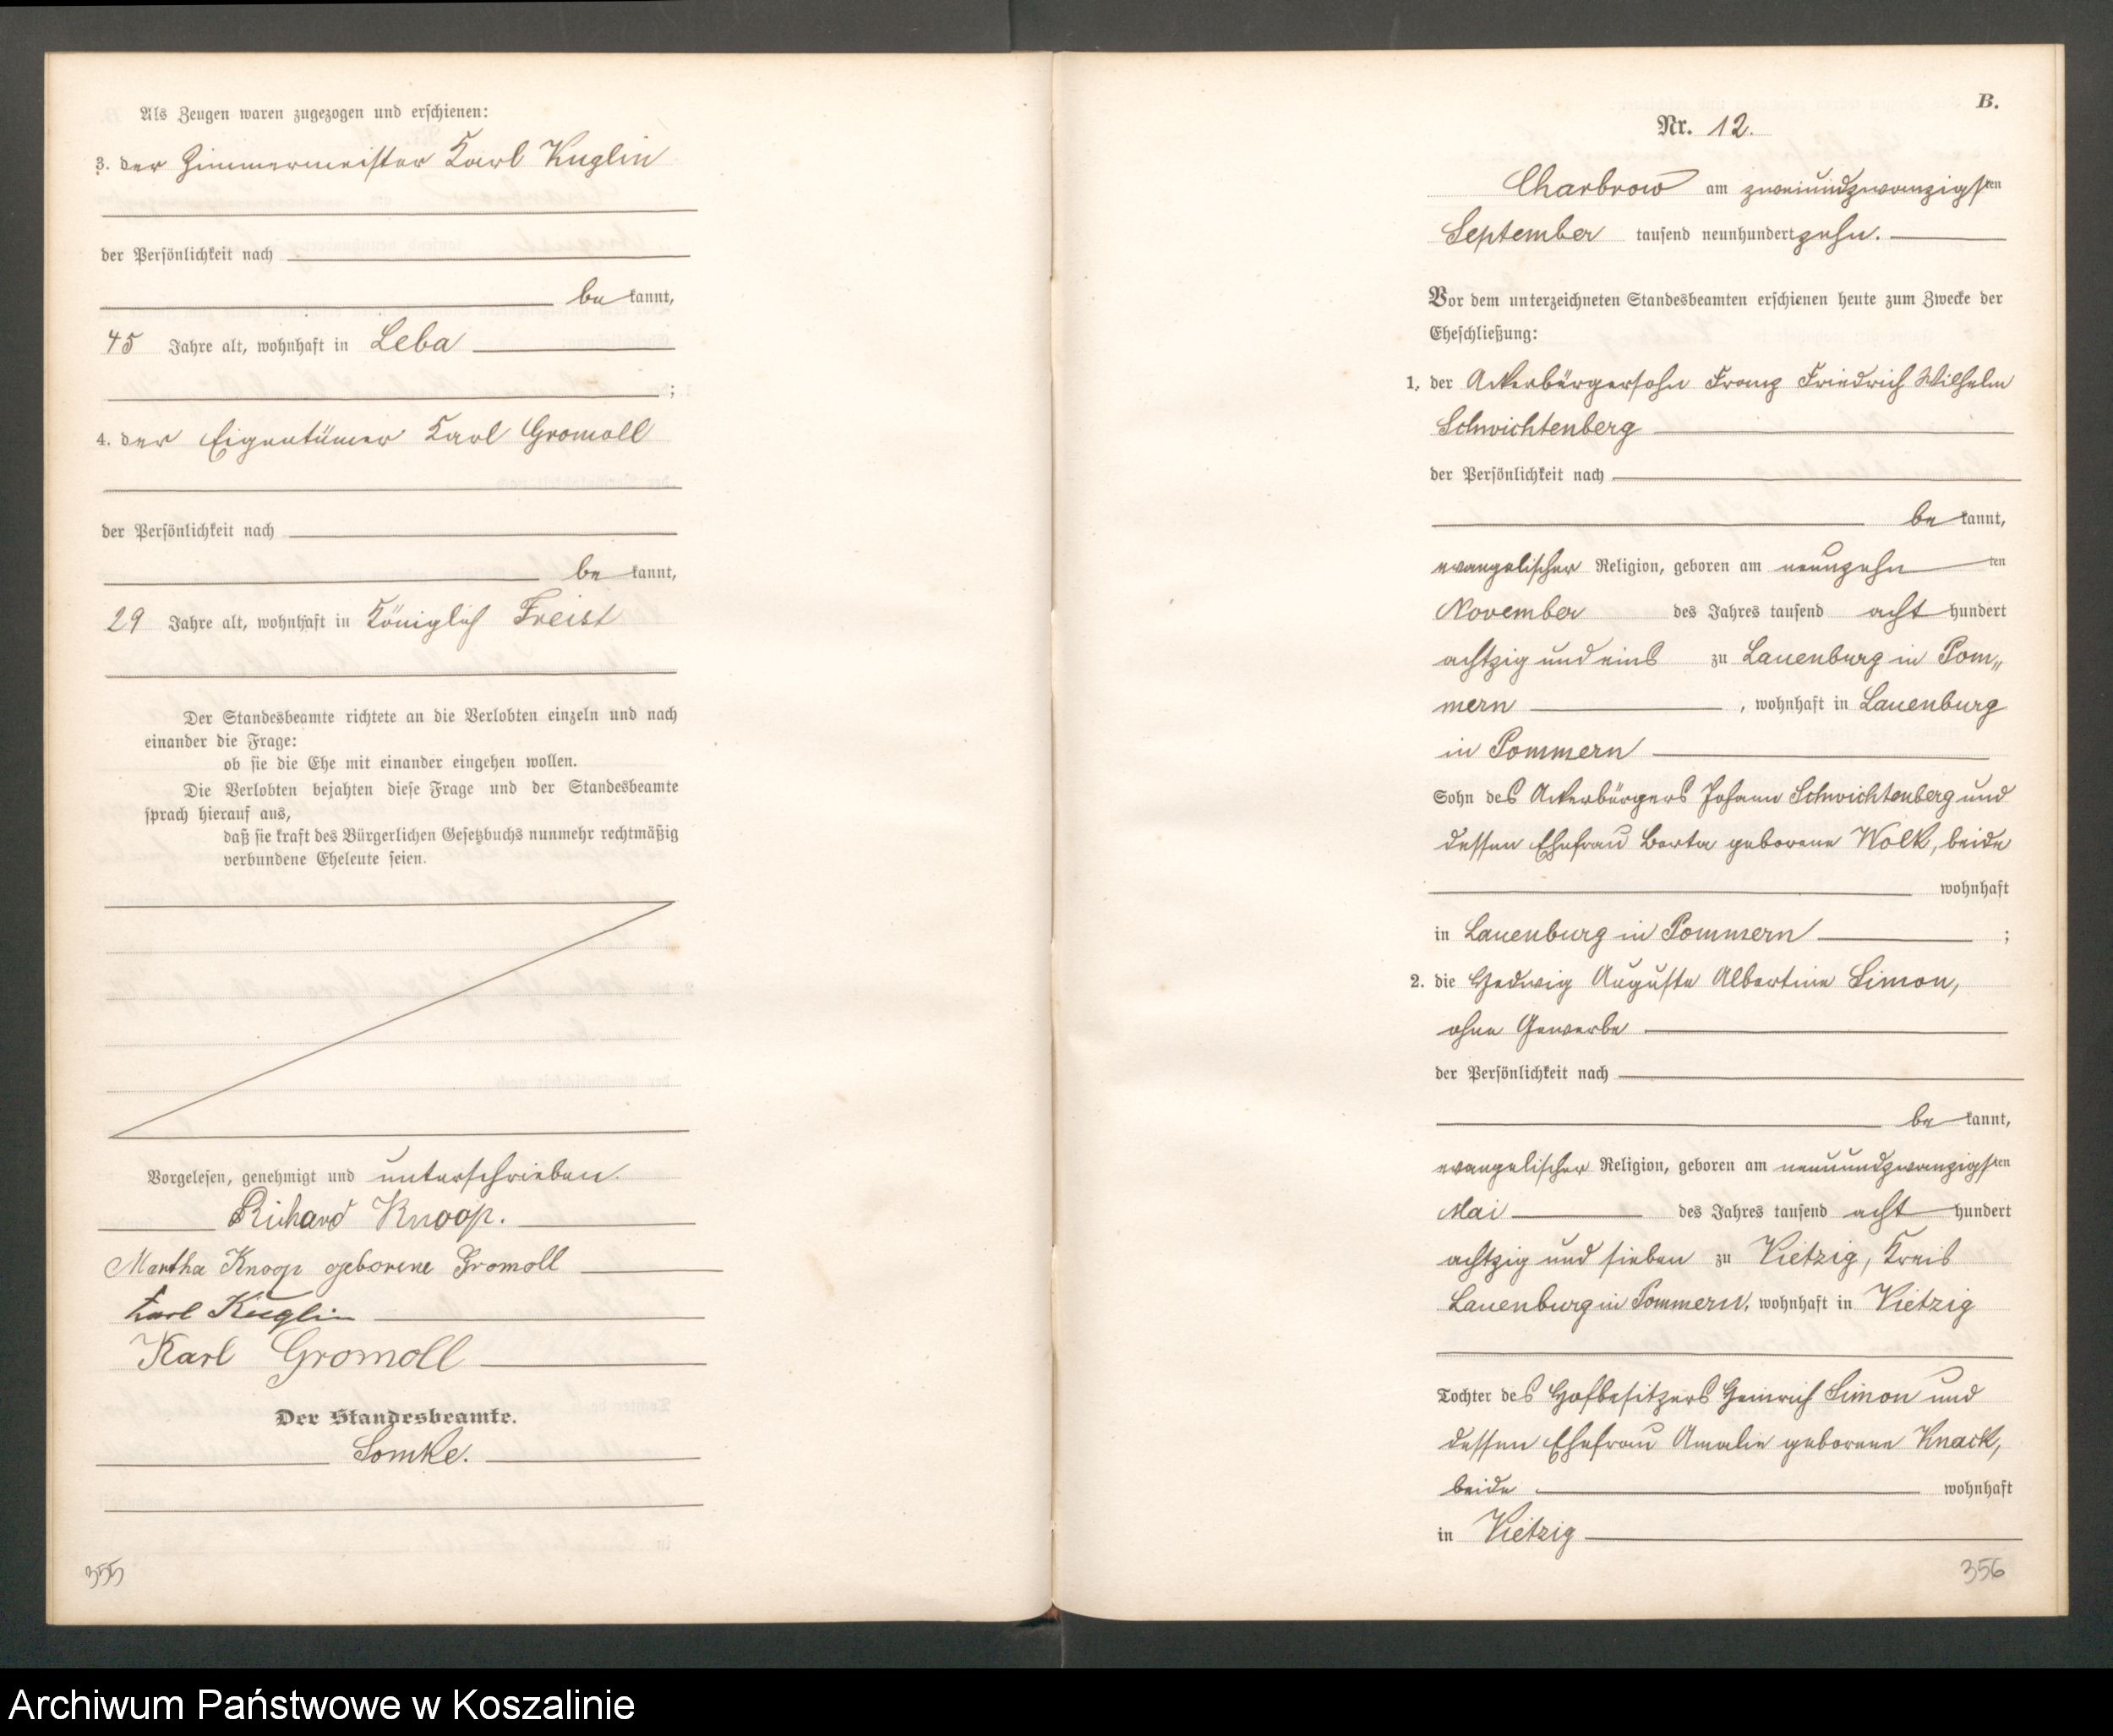 Als Zeugen waren zugezogen und erschienen:
3. der Zimmermeister Karl Kuglin
der Persönlichkeit nach
be kannt,
45 Jahre alt, wohnhaft in Leba
;
4. der Eigentümer Karl Gromoll
der Persönlichkeit nach
be kannt,
29 Jahre alt, wohnhaft in Königlich Freist
Der Standesbeamte richtete an die Verlobten einzeln und nach
einander die Frage:
ob sie die Ehe mit einander eingehen wollen.
Die Verlobten bejahten diese Frage und der Standesbeamte
sprach hierauf aus,
daß sie kraft des Bürgerlichen Gesetzbuchs nunmehr rechtmäßig
verbundene Eheleute seien.
Vorgelesen, genehmigt und unterschrieben.
Richard Knoop.
Martha Knoop geborene Gromoll
Karl Kuglin
Karl Gromoll
Der Standesbeamte.
Somke.
355
B.
Nr. 12.
Charbrow am zweiundzwanzigsten
September tausend neunhundert zehn.
Vor dem unterzeichneten Standesbeamten erschienen heute zum Zwecke der
Eheschließung:
1. der Ackerbürgersohn Franz Friedrich Wilhelm
Schwichtenberg
der Persönlichkeit nach
be kannt,
evangelischer Religion, geboren am neunzehn ten
November des Jahres tausend acht hundert
achtzig und eins zu Lauenburg in Pom„
mern , wohnhaft in Lauenburg
in Pommern
Sohn des Ackerbürgers Johann Schwichtenberg und
dessen Ehefrau Berta geborene Wolk, beide
wohnhaft
in Lauenburg in Pommern ;
2. die Hedwig Auguste Albertine Simon,
ohne Gewerbe
der Persönlichkeit nach
be kannt,
evangelischer Religion, geboren am neunundzwanzigsten
Mai des Jahres tausend acht hundert
achtzig und sieben zu Vietzig, Kreis
Lauenburg in Pommern, wohnhaft in Vietzig
Tochter des Hofbesitzers Heinrich Simon und
dessen Ehefrau Amalie geborene Knack,
beide wohnhaft
in Vietzig
356
Archiwum Państwowe w Koszalinie